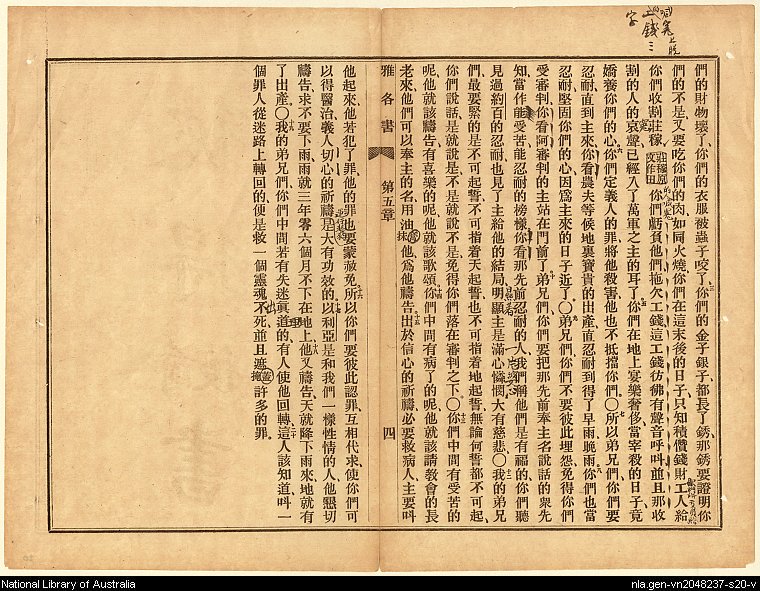 們的財物壞了你們的衣服被蟲子咬了你們的金子銀子都長了銹那銹要證明你
們的不是又要吃你們的肉如同火燒你們在這末後的日子只知積儹錢財工人給
你們收割莊稼
你們虧負他們拖欠工錢這工錢彷彿有聲音呼叫並且那收
割的人的哀聲已經入了萬軍之主的耳了你們在地上宴樂奢侈當宰殺的日子竟
嬌養你們的心你們定義人的罪將他殺害他也不抵擋你們〇所以弟兄們你們要
忍耐直到主來你看農夫等候地裏寶貴的出產直忍耐到得了早雨晚雨你們也當
忍耐堅固你們的心因爲主來的日子近了〇弟兄們你們不要彼此埋怨免得你們
受審判你看阿審判的主站在門前了弟兄們你們要把那先前奉主名說話的衆先
知當作能受苦能忍耐的榜樣你看那先前忍耐的人我們稱他們是有福的你們聽
見過約百的忍耐也見了主給他的結局明顯主是滿心憐憫大有慈悲〇我的弟兄
們最要緊的是不可起誓不可指着天起誓也不可指着地起誓無論何誓都不可起
你們說話是就說是不是就說不是免得你們落在審判之下〇你們中間有受苦的
呢他就該禱告有喜樂的呢他就該歌頌你們中間有病了的呢他就該請教會的長
老來他們可以奉主的名用油抹他爲他禱告出於信心的祈禱必要救病人主要叫
雅各書 第五章 四
他起來他若犯了罪他的罪也要蒙赦免所以你們要彼此認罪互相代求使你們可
以得醫治義人切心的祈禱是大有功效的以利亞是和我們一樣性情的人他懇切
禱告求不要下雨雨就三年零六個月不下在地上他又禱告天就降下雨來地就有
了出產〇我的弟兄們你們中間若有失迷眞道的有人使他回轉這人該知道叫一
個罪人從迷路上轉回的便是救一個靈魂不死並且遮掩許多的罪
National Library of Australia
nla.gen-vn2048237-s20-v